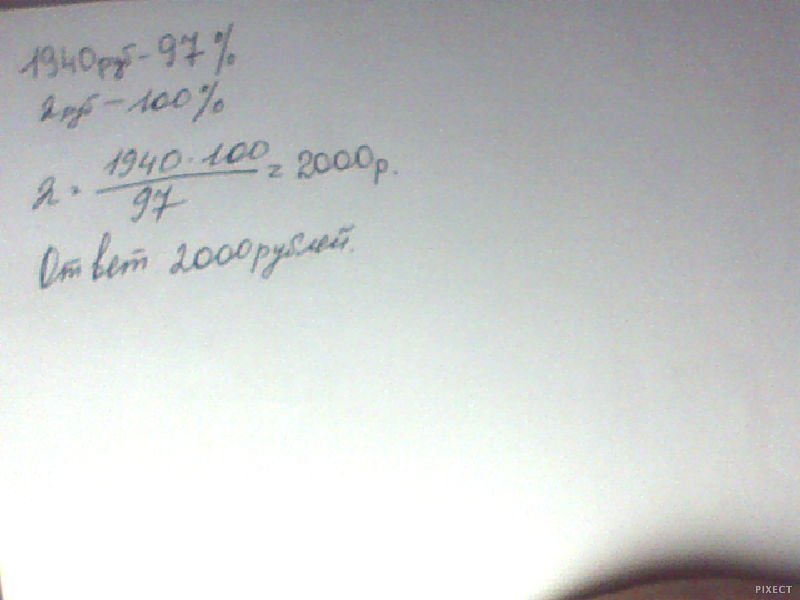 1940 руб - 97%
x руб - 100%
x = 1940 · 100 / 97 = 2000 р.
Ответ 2000 рублей.
PIXECT